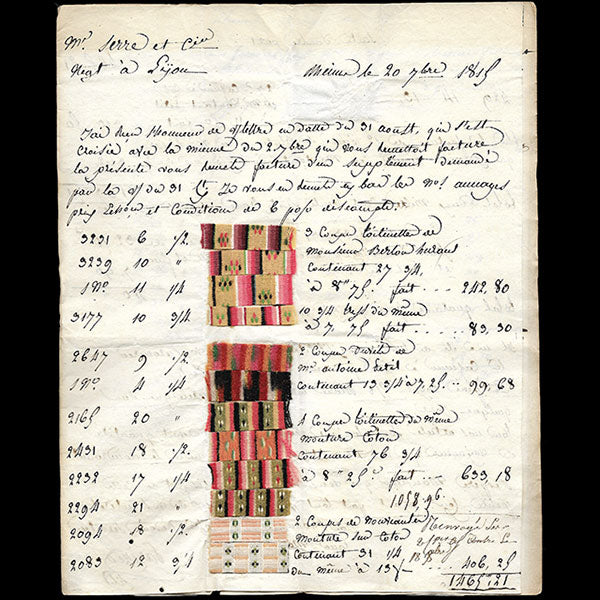 Mr. Serre et Cie
Negt à Lyon
le 20 7bre 1815
J'ai Reçu Honneur de V/lettre en datte du 31 aoust, qui s'est
Croisée avec la mienne du 2 7bre qui vous remettoit facture
la présente vous remet facture d'un supplément demandé
par la V/ du 31 Ct Je vous en remets en bas les Nos. aunages
prix et Condition de 6 p% d'escompte.
3231 6 1/2.
3239 10 "
1No. 11 1/4
3177 10 3/4
2647 9 1/2.
1No. 4 1/4
2165 20 "
2431 18 1/2.
2232 17 1/4
2294 21 "
2094 18 1/2
2083 12 3/4
3 Coupes toilinettes de
Monsieur
Contenant 27 3/4,
à 8" 75. fait ... 242,80
10 3/4 du même
à 7. 75 fait ... 83,30
2 Coupes de
Mr. antoine
Contenant 13 3/4 à 7,25 ... 99,68
4 Coupes toilinettes de même
monture Coton
Contenant 76 3/4
à 8" 25c. fait ... 633,18
1058,96
2 Coupes de nouveautés
Monture sur Coton
Contenant 31 1/4
du même à 13 ... 406,25
1465,21